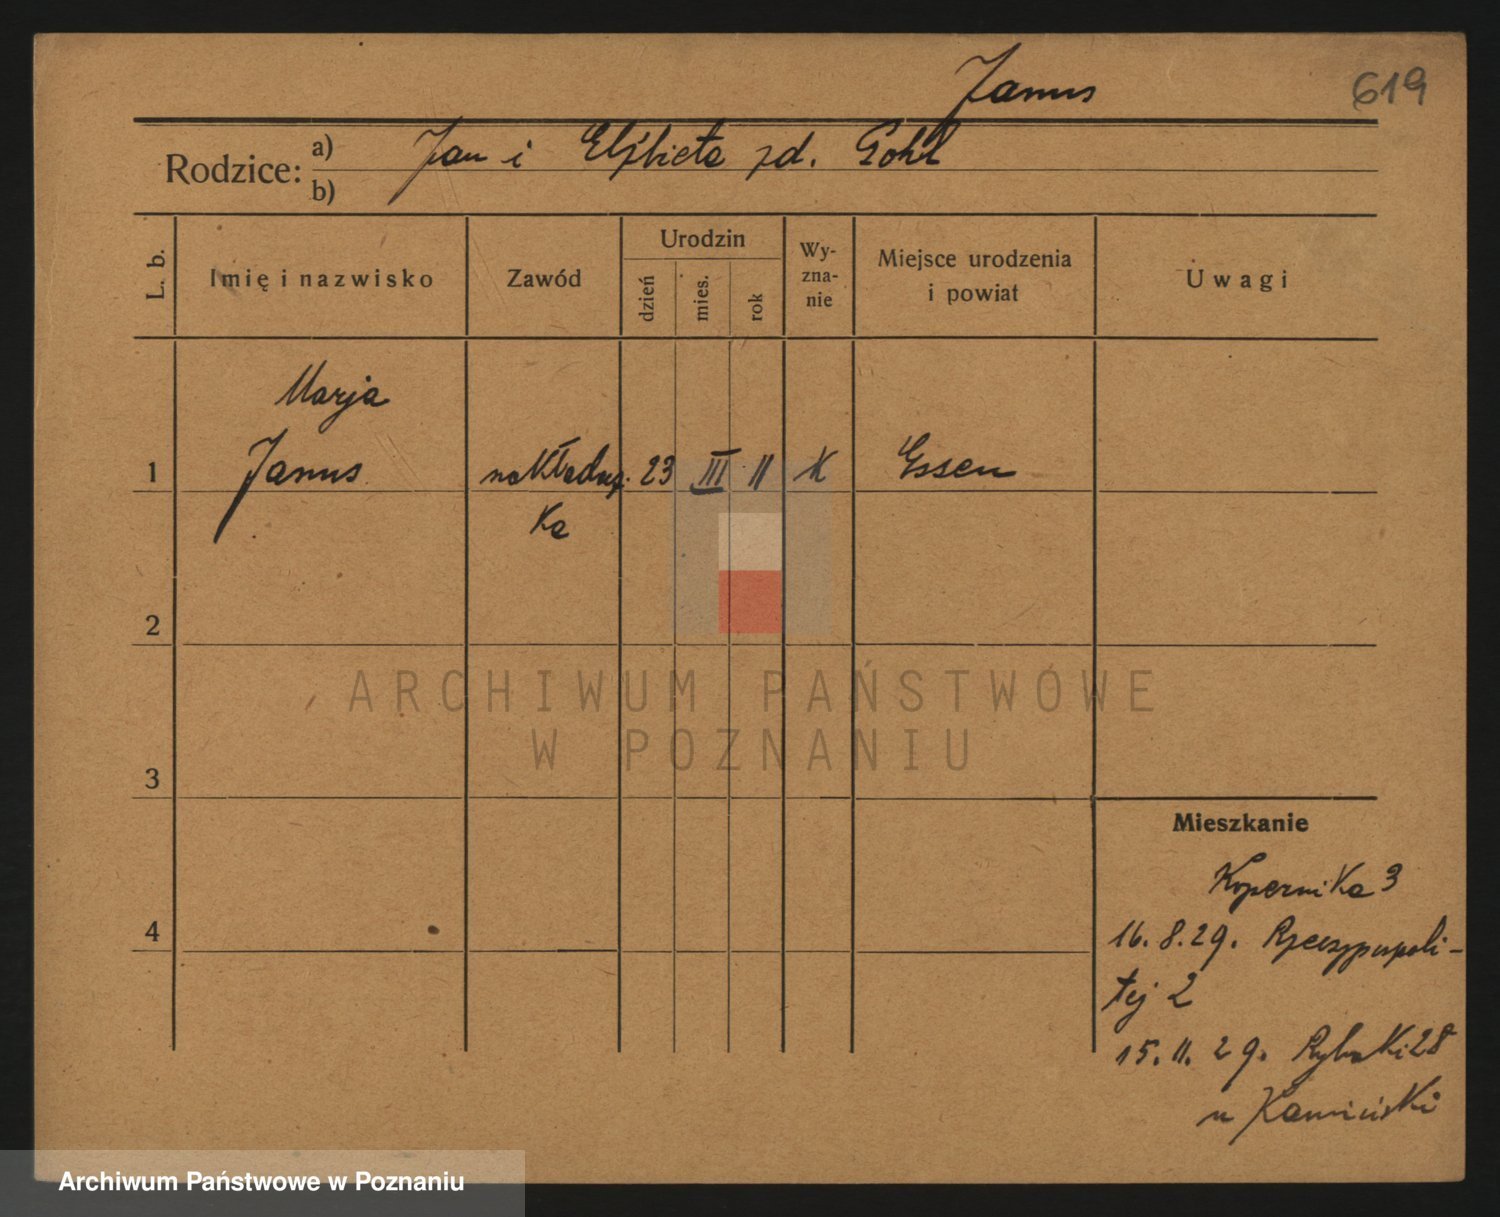 Janus
619
Rodzice: a) Jan i Elżbieta zd. Gohl
b)
L. b. Imię i nazwisko Zawód Urodzin dzień mies. rok Wy-zna-nie Miejsce urodzenia i powiat Uwagi
Marja
1 Janus nakładacz. 23 III 11 K Essen
ka
2
ARCHIWUM PAŃSTWOWE
W POZNANIU
3
Mieszkanie
Kopernika 3
4
16. 8. 29. Rzeczypospoli-
tej 2
15. 11. 29. Rybaki 28
u Kamiński
Archiwum Państwowe w Poznaniu